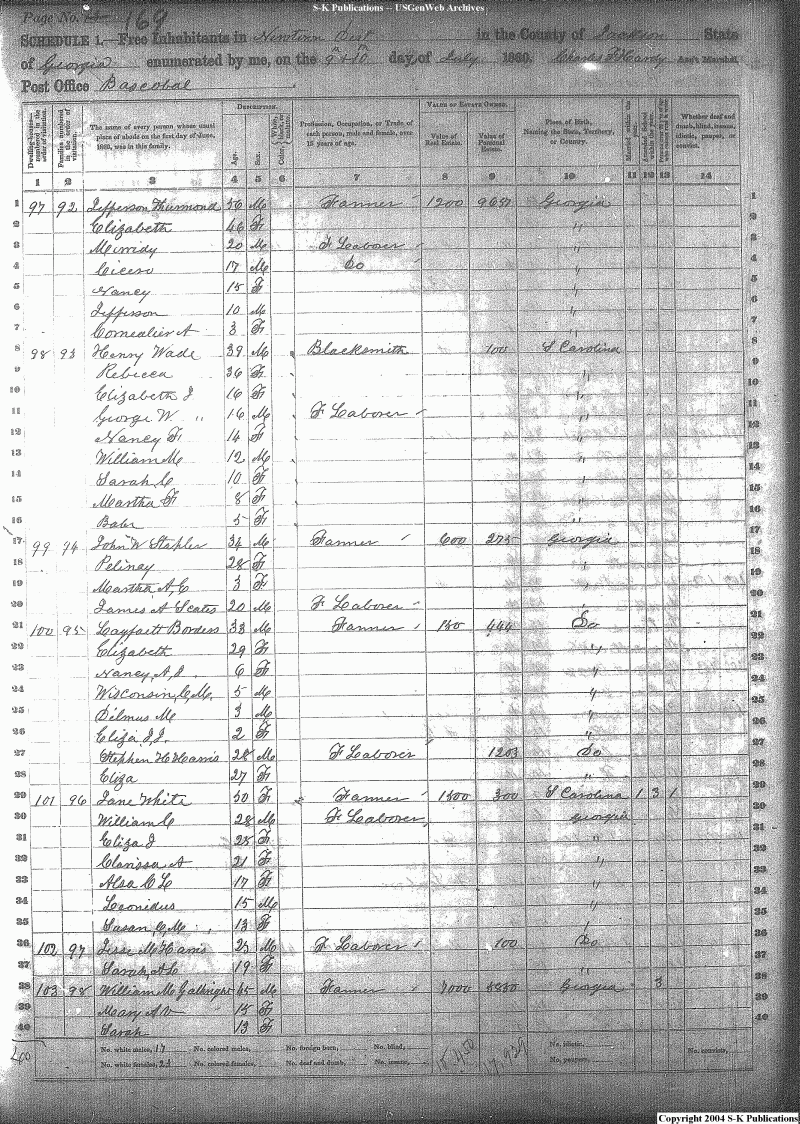 S-K Publications -- USGenWeb Archives
Page No. 169
SCHEDULE 1.—Free Inhabitants in Newtown Dist in the County of Jackson State
of Georgia enumerated by me, on the 9 & 10 day of July 1860. Charles F Hardy Ass't Marshal.
Post Office Bascobal
Dwelling-houses—numbered in the order of visitation.
Families numbered in the order of visitation.
The name of every person whose usual place of abode on the first day of June, 1860, was in this family.
DESCRIPTION.
Age.
Sex.
Color, White, black, or mulatto.
Profession, Occupation, or Trade of each person, male and female, over 15 years of age.
VALUE OF ESTATE OWNED.
Value of Real Estate.
Value of Personal Estate.
Place of Birth, Naming the State, Territory, or Country.
Married within the year.
Attended School within the year.
Whether deaf and dumb, blind, insane, idiotic, pauper, or convict.
1 2 3 4 5 6 7 8 9 10 11 12 13 14
1 97 92 Jefferson Thurmond 56 M Farmer 1200 9657 Georgia 1
2 Elizabeth 46 F " 2
3 Merridy 20 M F Laborer " 3
4 Cicero 17 M Do " 4
5 Nancy 15 F " 5
6 Jefferson 10 M " 6
7 Cornealier A 3 F " 7
8 98 93 Henry Wade 39 M Blacksmith 100 S Carolina 8
9 Rebecca 36 F " 9
10 Elizabeth J 16 F " 10
11 George W " 16 M F Laborer " 11
12 Nancy F 14 F " 12
13 William M 12 M " 13
14 Sarah C 10 F " 14
15 Martha F 8 F " 15
16 5 F " 16
17 99 94 John W Stapler 34 M Farmer 600 275 Georgia 17
18 Peliney 28 F " 18
19 Martha A, C 3 F " 19
20 James A Scates 20 M F Laborer " 20
21 100 95 Layfaett Borders 33 M Farmer 150 444 Do 21
22 Elizabeth 29 F " 22
23 Nancy, A, J 6 F " 23
24 Wisconsin, C, M, 5 M " 24
25 Dilmus M 3 M " 25
26 Eliza J, J. 2 F " 26
27 Stephen H Harris 28 M F Laborer 1203 Do 27
28 Eliza 27 F " 28
29 101 96 Jane White 50 F Farmer 1500 300 S Carolina 1 3 1 29
30 William C 28 M F Laborer Georgia 30
31 Eliza J 25 F " 31
32 Clarissa A 21 F " 32
33 Alsa C L 17 F " 33
34 Leonidus 15 M " 34
35 Susan, C, M 13 F " 35
36 102 97 Jesse M Harris 25 M F Laborer 100 Do 36
37 Sarah, A L 19 F " 37
38 103 98 William M Galbright 45 M Farmer 7000 5850 Georgia 3 38
39 Mary A V 15 F " 39
40 Sarah 13 F 40
No. white males, 17 No. colored males, No. foreign born, No. blind, No. idiotic, No. convicts,
No. white females, 23 No. colored females, No. deaf and dumb, No. insane, No. paupers,
Copyright 2004 S-K Publications